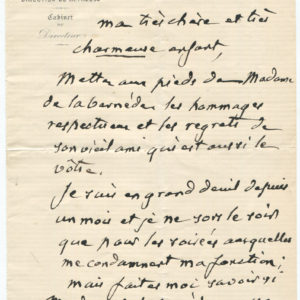 Cabinet
du
Directeur
ma très chère et très
charmeuse enfant,
Mettez aux pieds de Madame
de la bernède les hommages
respectueux et les regrets de
son vieil ami qui est aussi le
vôtre.
Je suis en grand deuil depuis
un mois et je ne sors le soir
que pour les soirées auxquelles
me condamnent ma fonction;
mais faites moi savoir si